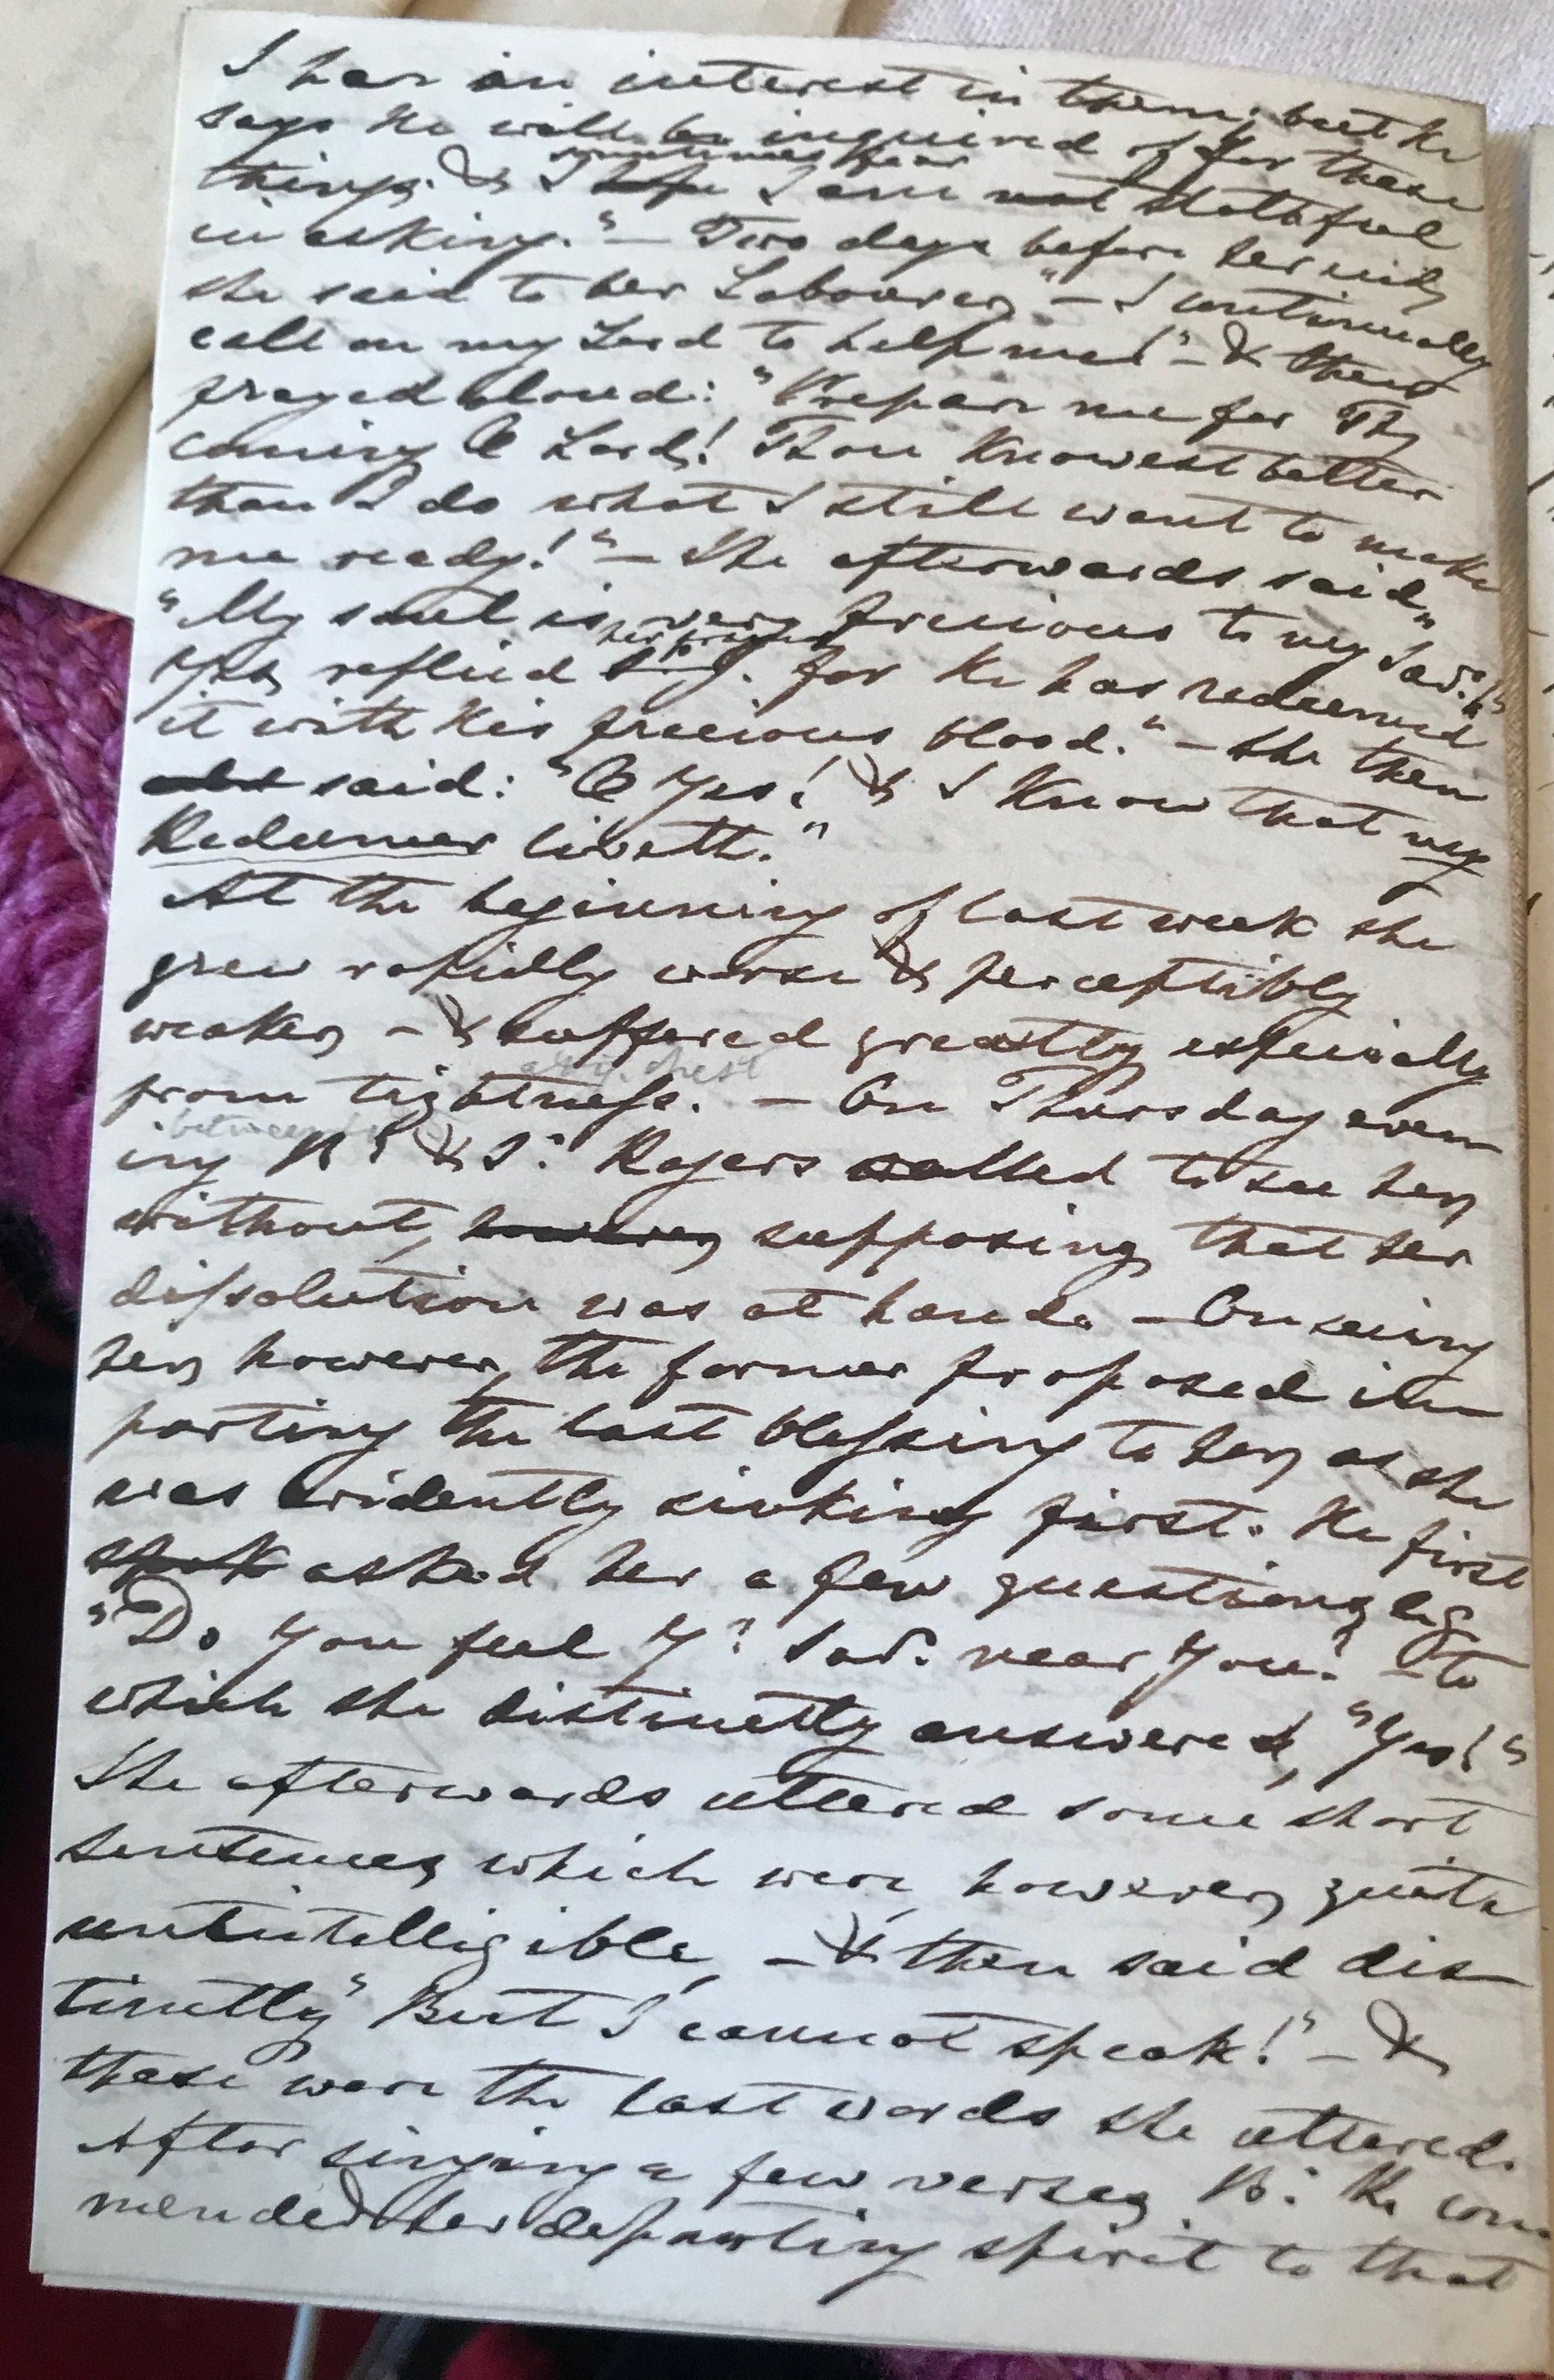 I har an interest in them; but He
says He will be inquired of for these
sometimes fear
things. & I hope I am not slothful
in asking." — Two days before her end,
she said to her Labourer, "— I continually
call on my Lord to help me!" — & then
prayed aloud: "Prepare me for Thy
coming O Lord! Thou knowest better
than I do what I still want to make
me ready!" — She afterwards said,
"My soul is very precious to my Savr."
her
Yes, replied for He has redeemed
it with His precious blood." — She then
said: "O Yes! & I Know that my
Redeemer liveth."
At the beginning of last week she
grew rapidly worse & perceptibly
weaker, — & suffered greatly especially
chest
from tightness. — On Thursday even
between
ing Br. & Sr. Rogers called to see her,
without, however, supposing that her
dissolution was at hand. — On seeing
her, however, the former proposed im
parting the last blessing to her, as she
was evidently sinking first. He first
spok asked her a few questions, eg
"Do you feel Yr. Savr. near you? — to
which she distinctly answered, "Yes!"
She afterwards uttered some short
sentences, which were, however, quite
unintelligible, — & then said dis
tinctly "But I cannot speak!" — &
these were the last words she uttered.
After singing a few verses, Br. R. com
mended her departing spirit to that